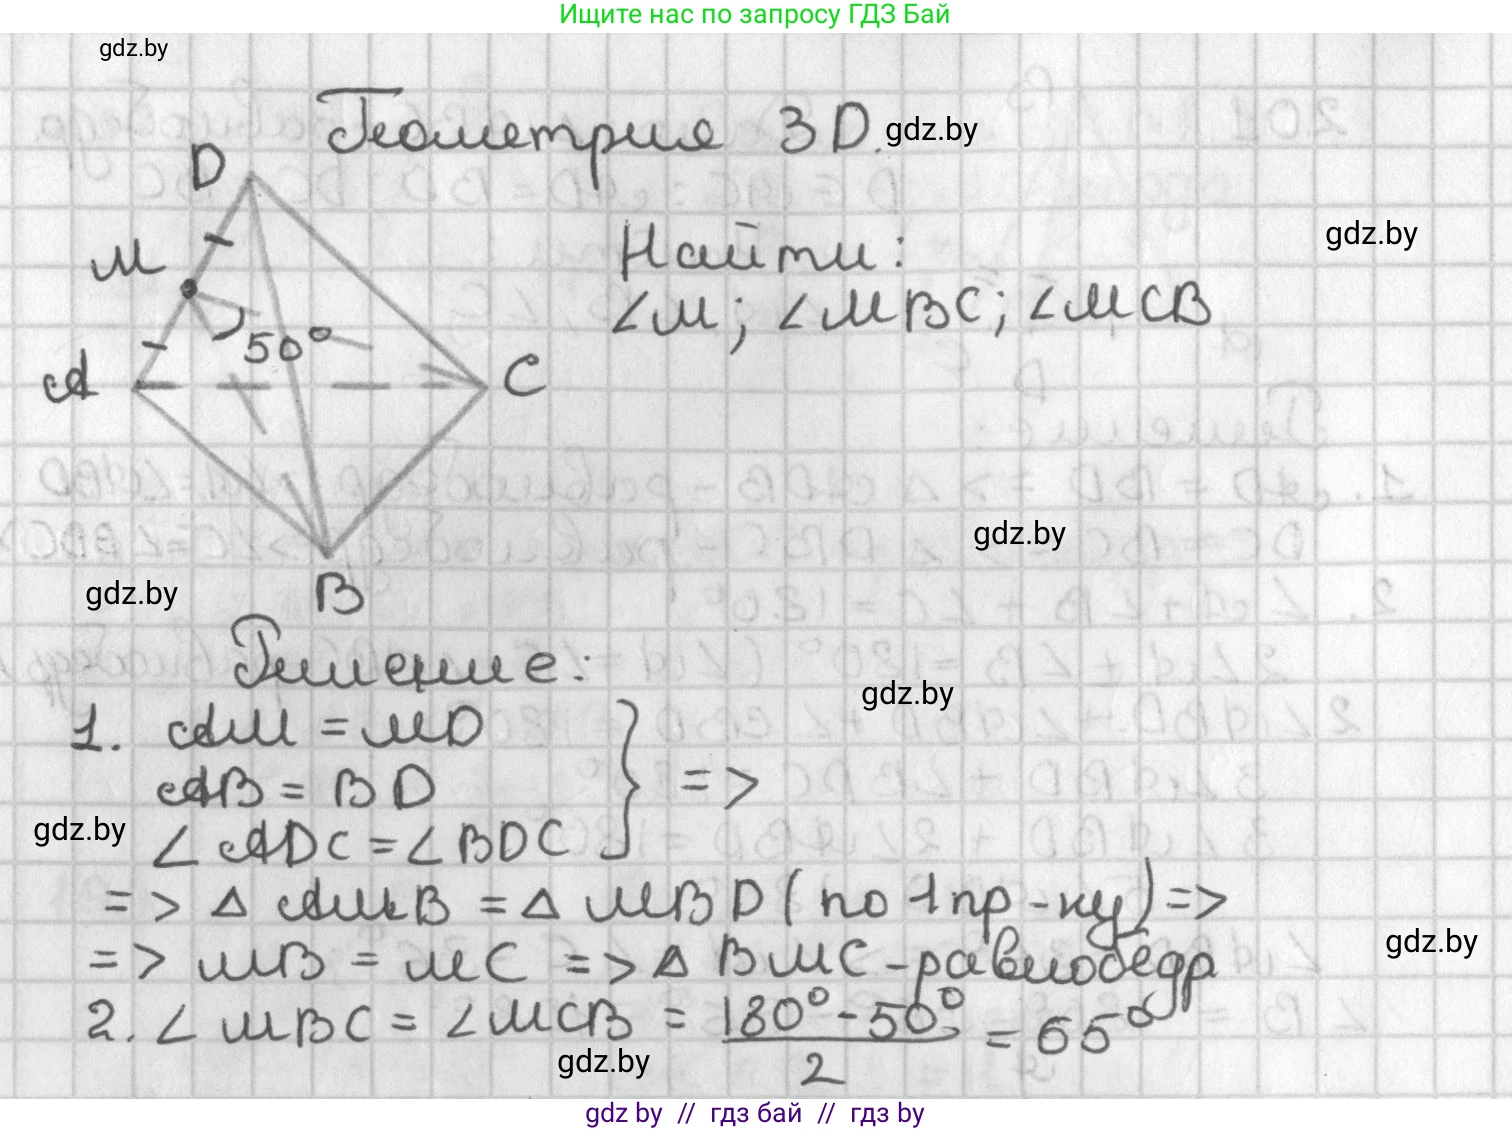 Ищите нас по запросу ГДЗ Бай
gdz.by
Геометрия 3D.
gdz.by
D
gdz.by
Найти:
M
∠M; ∠MBC; ∠MCB
50°
A
C
gdz.by
gdz.by
B
Решение:
gdz.by
1. AM = MD
AB = BD
gdz.by
∠ADC = ∠BDC
} =>
=> △ AMB = △ MBD (по 1 пр-ку) =>
gdz.by
=> MB = MC => △ BMC - равнобедр
2. ∠MBC = ∠MCB = 180° - 50° / 2 = 65°
gdz.by
gdz by // гдз бай // гдз by